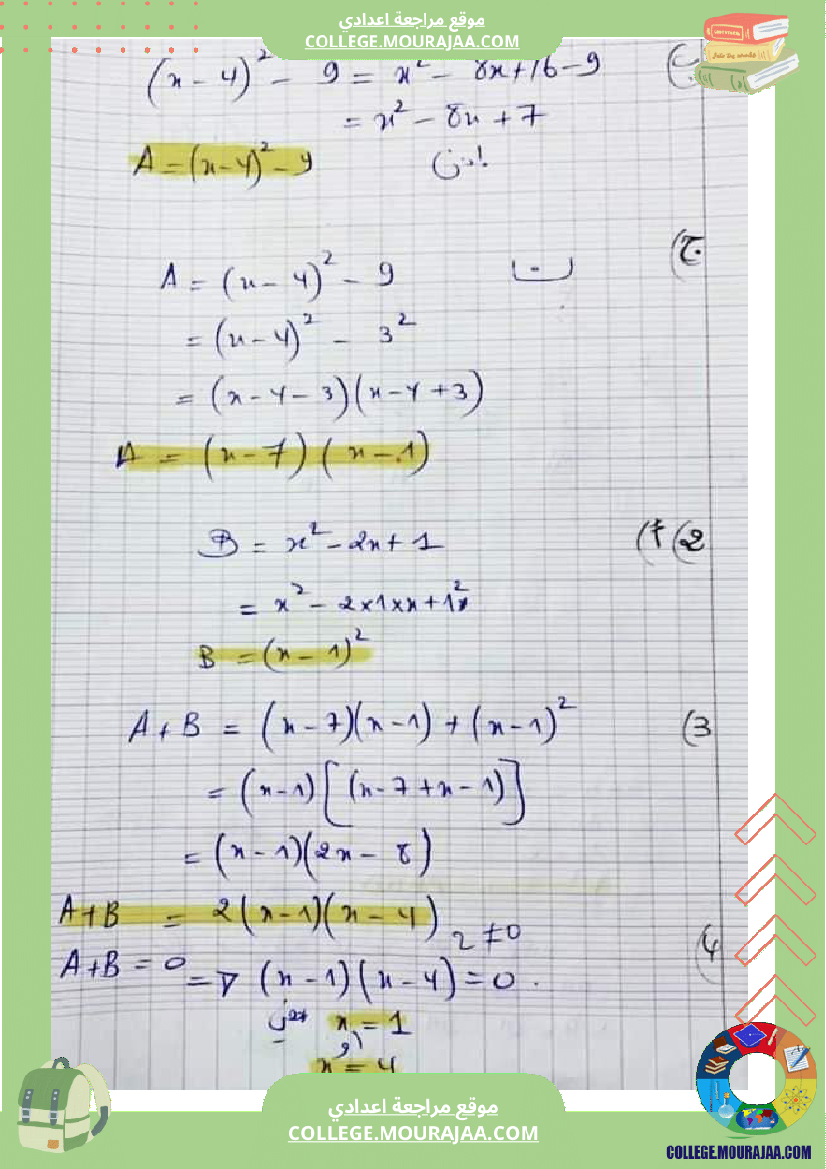 موقع مراجعة اعدادي
COLLEGE.MOURAJAA.COM
ب) (x - 4)² - 9 = x² - 8x + 16 - 9
= x² - 8x + 7
إذن A = (x - 4)² - 9
ج) A = (x - 4)² - 9
= (x - 4)² - 3²
= (x - 4 - 3)(x - 4 + 3)
A = (x - 7)(x - 1)
2) أ) B = x² - 2x + 1
= x² - 2×1×x + 1²
B = (x - 1)²
3) A + B = (x - 7)(x - 1) + (x - 1)²
= (x - 1)[(x - 7 + x - 1)]
= (x - 1)(2x - 8)
A + B = 2(x - 1)(x - 4)
2 ≠ 0
4) A + B = 0 => (x - 1)(x - 4) = 0.
x = 1
أو
x = 4
موقع مراجعة اعدادي
COLLEGE.MOURAJAA.COM
COLLEGE.MOURAJAA.COM